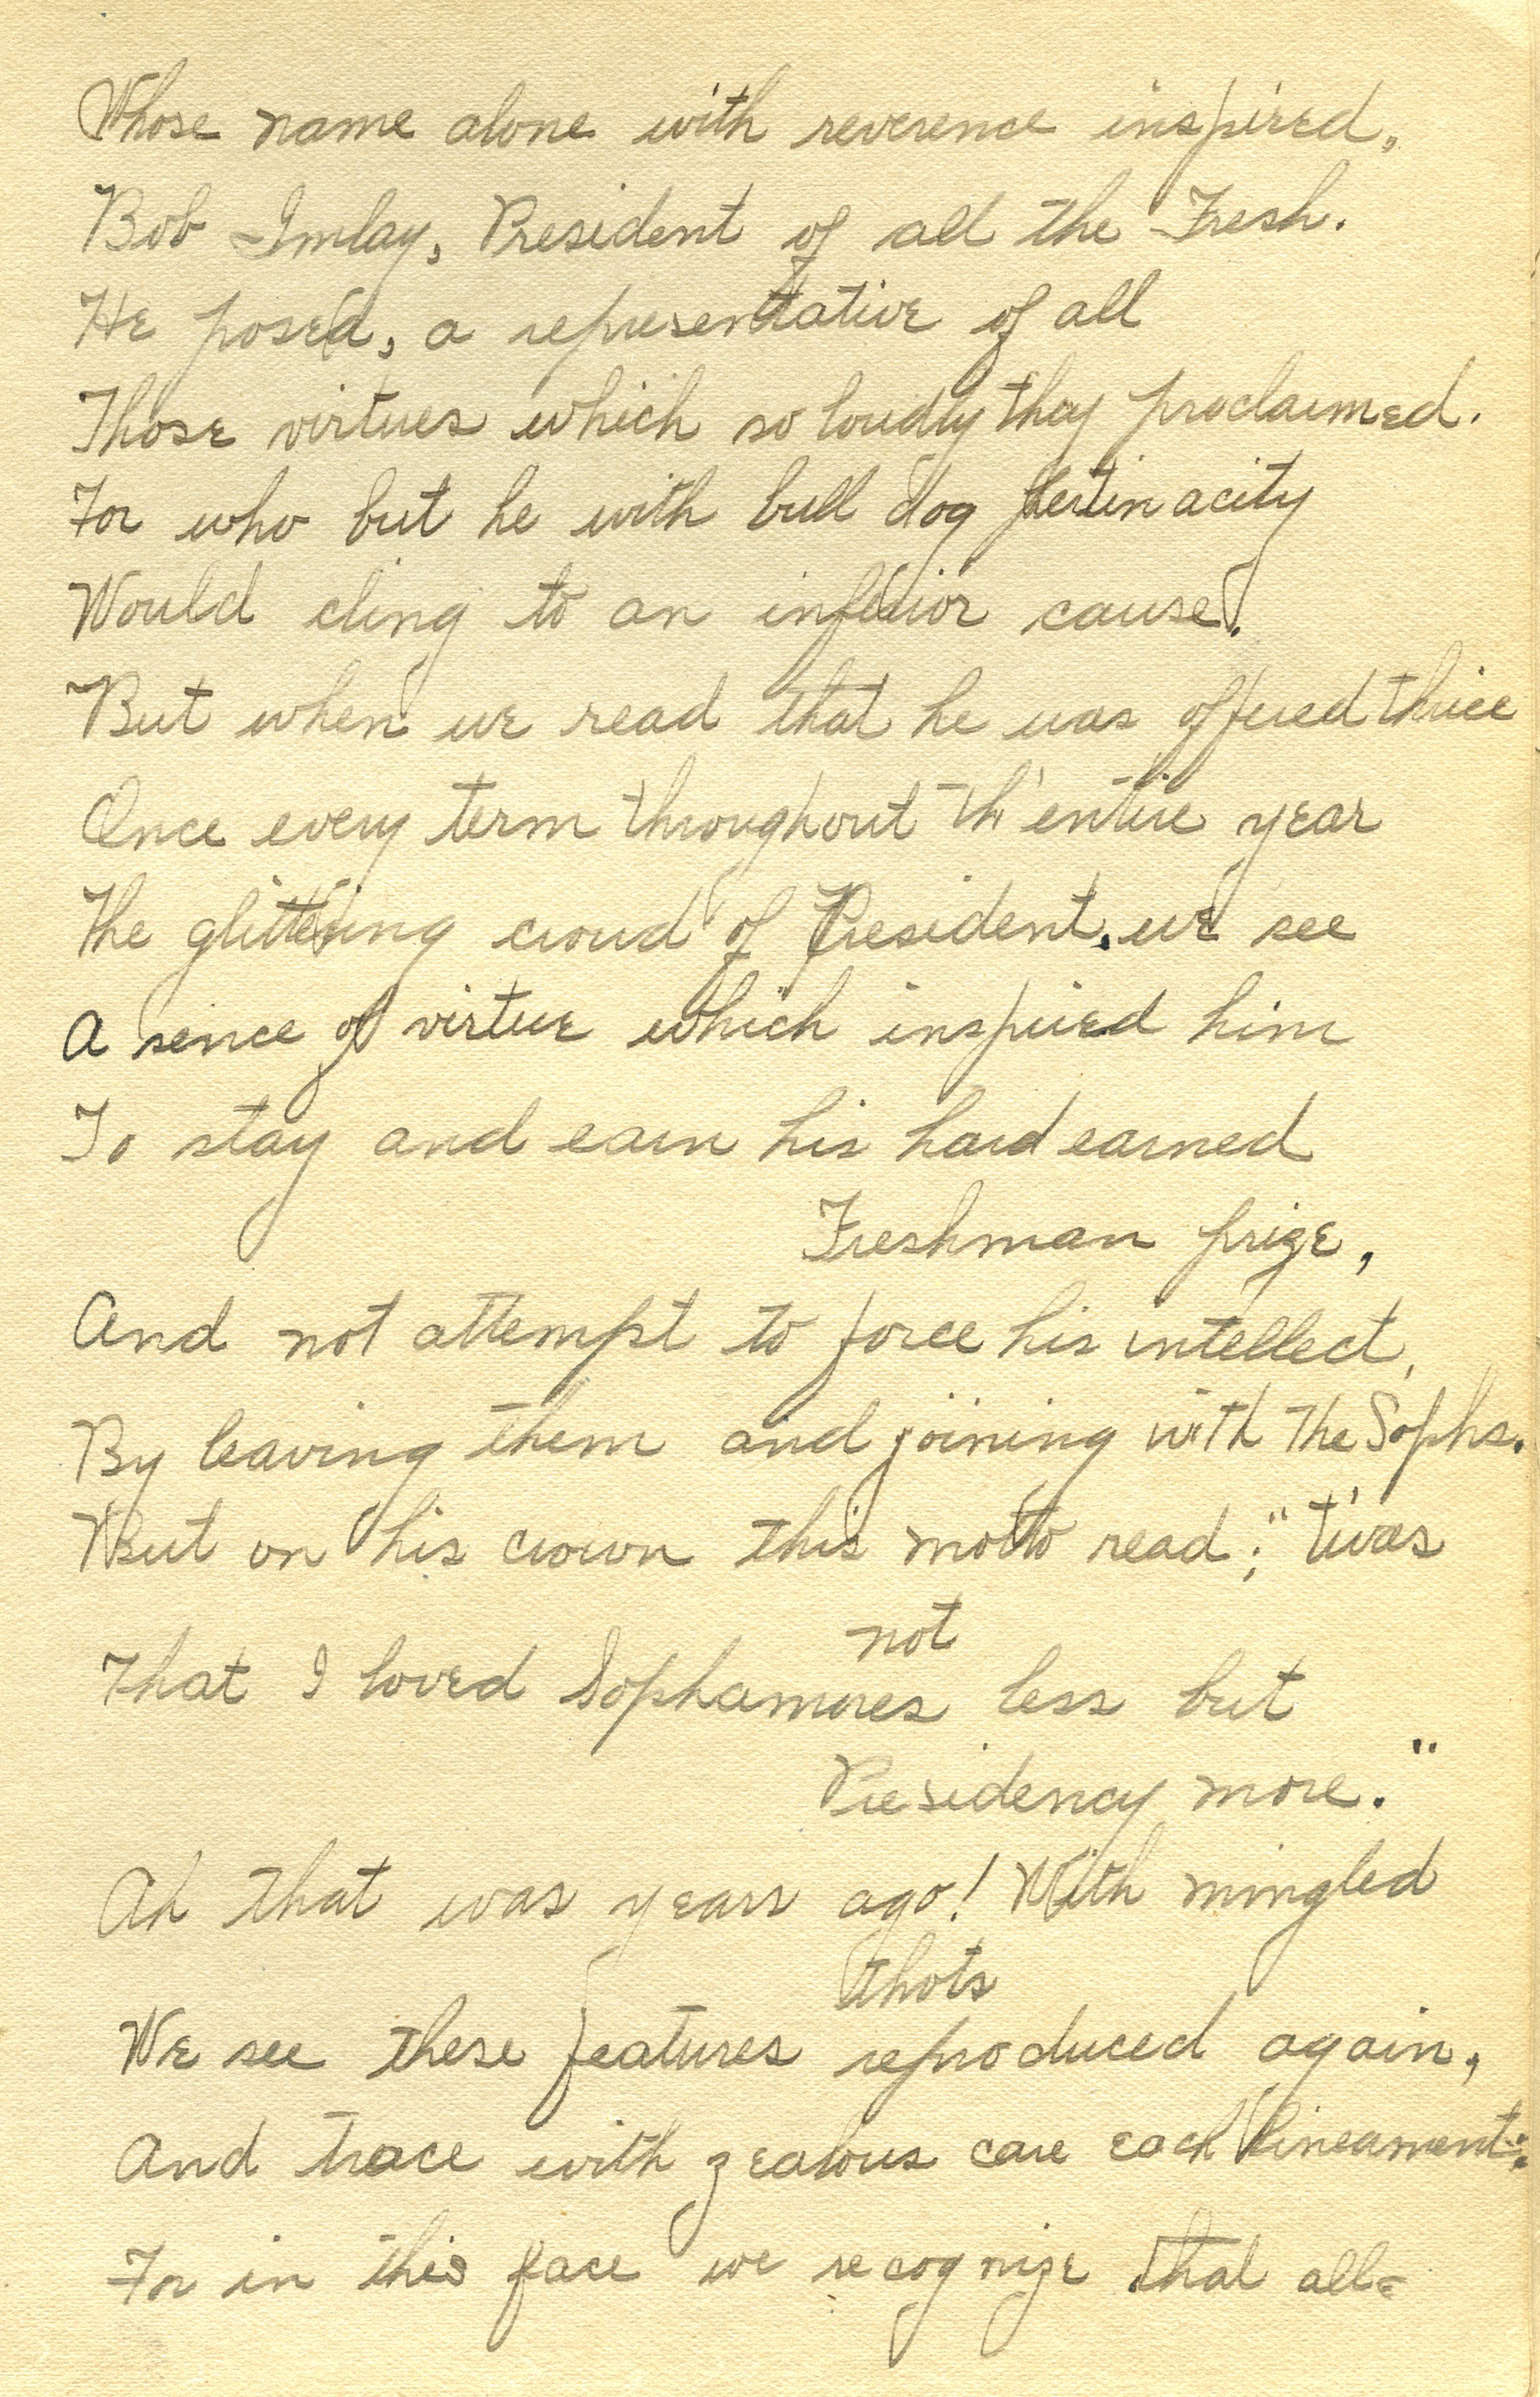 Whose name alone with reverence inspired,
Bob Imlay, President of all the Fresh.
He posed, a representative of all
Those virtues which so loudly they proclaimed.
For who but he with bull dog pertinacity
Would cling to an inferior cause.
But when we read that he was offered thrice
Once every term throughout th' entire year
The glittering crowd of President, we see
A sence of virtue which inspired him
To stay and earn his hard earned
Freshman prize,
And not attempt to force his intellect,
By leaving them and joining with the Sophs.
But on his crown this motto read; "t'was
not
That I loved Sophamores less but
Presidency more."
Ah that was years ago! With mingled
thots
We see these features reproduced again,
And trace with zealous care each lineament:
For in this face we recognize that all=